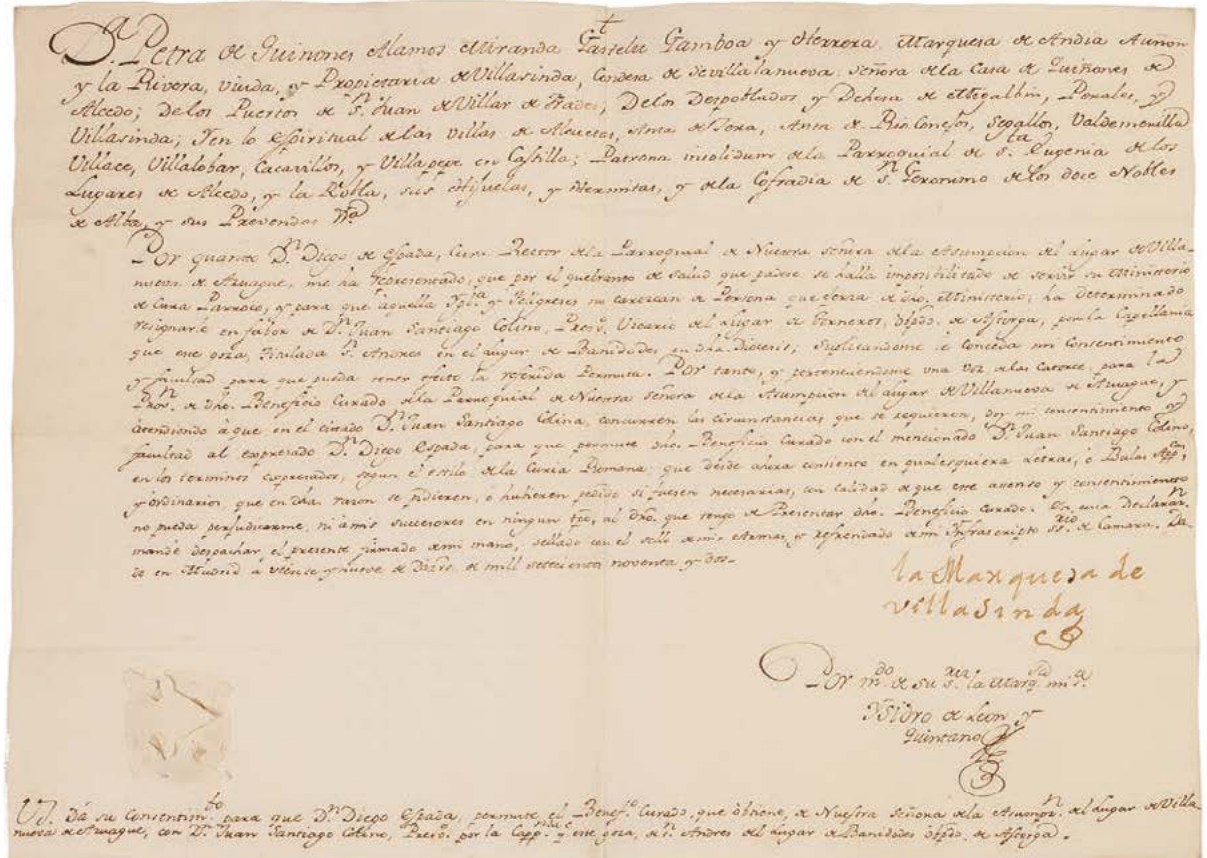 †
D.ª Petra de Quiñones Alamos Miranda Gastelu Gamboa y Herrera. Marquesa de Andia Auñon
y la Rivera, viuda, y Propietaria de Villasinda, Condesa de Sevillalanueva. Señora de la Casa de Quiñones de
Alcedo; de los Puertos de S.n Juan de Villar de Frades, De los Despoblados y Dehesa de Megalbin, Porales, y
Villasinda; Y en lo espiritual de las villas de Alcuetas, Anta de Tera, Anta de Rio Conejos, Segallos, Valdemerilla
Villace, Villalobar, Cacavillos, y Villapepe en Castilla; Patrona insolidum de la Parroquial de S.ta Eugenia de los
Lugares de Alcedo, y la Robla, sus Hijuelas, y Hermitas, y de la Cofradia de S.n Geronimo de los doce Nobles
de Alba, y sus Prevendas &a
Por quanto D.n Diego de Espada, Cura Rector de la Parroquial de Nuestra Señora de la Asumpcion del Lugar de Villa-
nueva de Azuague, me ha representado, que por el quebranto de salud que padece se halla imposibilitado de servir su Ministerio
de Cura Parroco, y para que aquella Ygl.ia y Feligreses no carezcan de Persona que exerza dho. Ministerio, ha determinado
resignarle en fabor de D.n Juan Santiago Colino, Presv.o Vicario del Lugar de Forneros, Obpdo. de Astorga, por la Capellania
que este goza, titulada S.n Andres en el Lugar de Banidodes en dha. Diocesis; suplicandome le conceda mi consentimiento
y facultad para que pueda tener efecto la referida Permuta. Por tanto, y perteneciendome una voz de las catorce para la
Prov.n de dho. Beneficio Curado de la Parroquial de Nuestra Señora de la Asumpcion del Lugar de Villanueva de Azuague, y
atendiendo à que en el citado D.n Juan Santiago Colino, concurren las circunstancias que se requieren, doy mi consentimiento y
facultad al expresado D.n Diego Espada, para que permute dho. Beneficio Curado con el mencionado D.n Juan Santiago Colino,
en los terminos expresados, segun el estilo de la Curia Romana que desde ahora consiento en qualesquiera Letras, ò Bulas App.cas
y ordinarios que en dha. razon se pidieren, ò hubieren pedido si fuesen necesarias, con calidad de que este asenso y consentimiento
no pueda perjudicarme, ni à mis succesores en ningun tpo, al dro. que tengo de Presentar dho. Beneficio Curado. En cuia Declaraz.n
mandè despachar el presente firmado de mi mano, sellado con el sello de mis Armas, y refrendado de mi Infrascripto S.rio de Camara. Da-
do en Madrid à veinte y nueve de Dizre. de mill setecientos noventa y dos-
la Marquesa de
Villasinda
Por m.do de su S.ria la Marq.sa mi S.ra
Ysidro de Leon y
Quintano
VS. Dà su Consentim.to para que D.n Diego Espada, permute el Benef.o Curado, que obtiene, de Nuestra Señora de la Asumpz.n del Lugar de Villa
nueva de Azuague, con D.n Juan Santiago Colino, Presv.o por la Capp.nia q.e este goza, de S.n Andres del Lugar de Banidodes Obpdo. de Astorga.